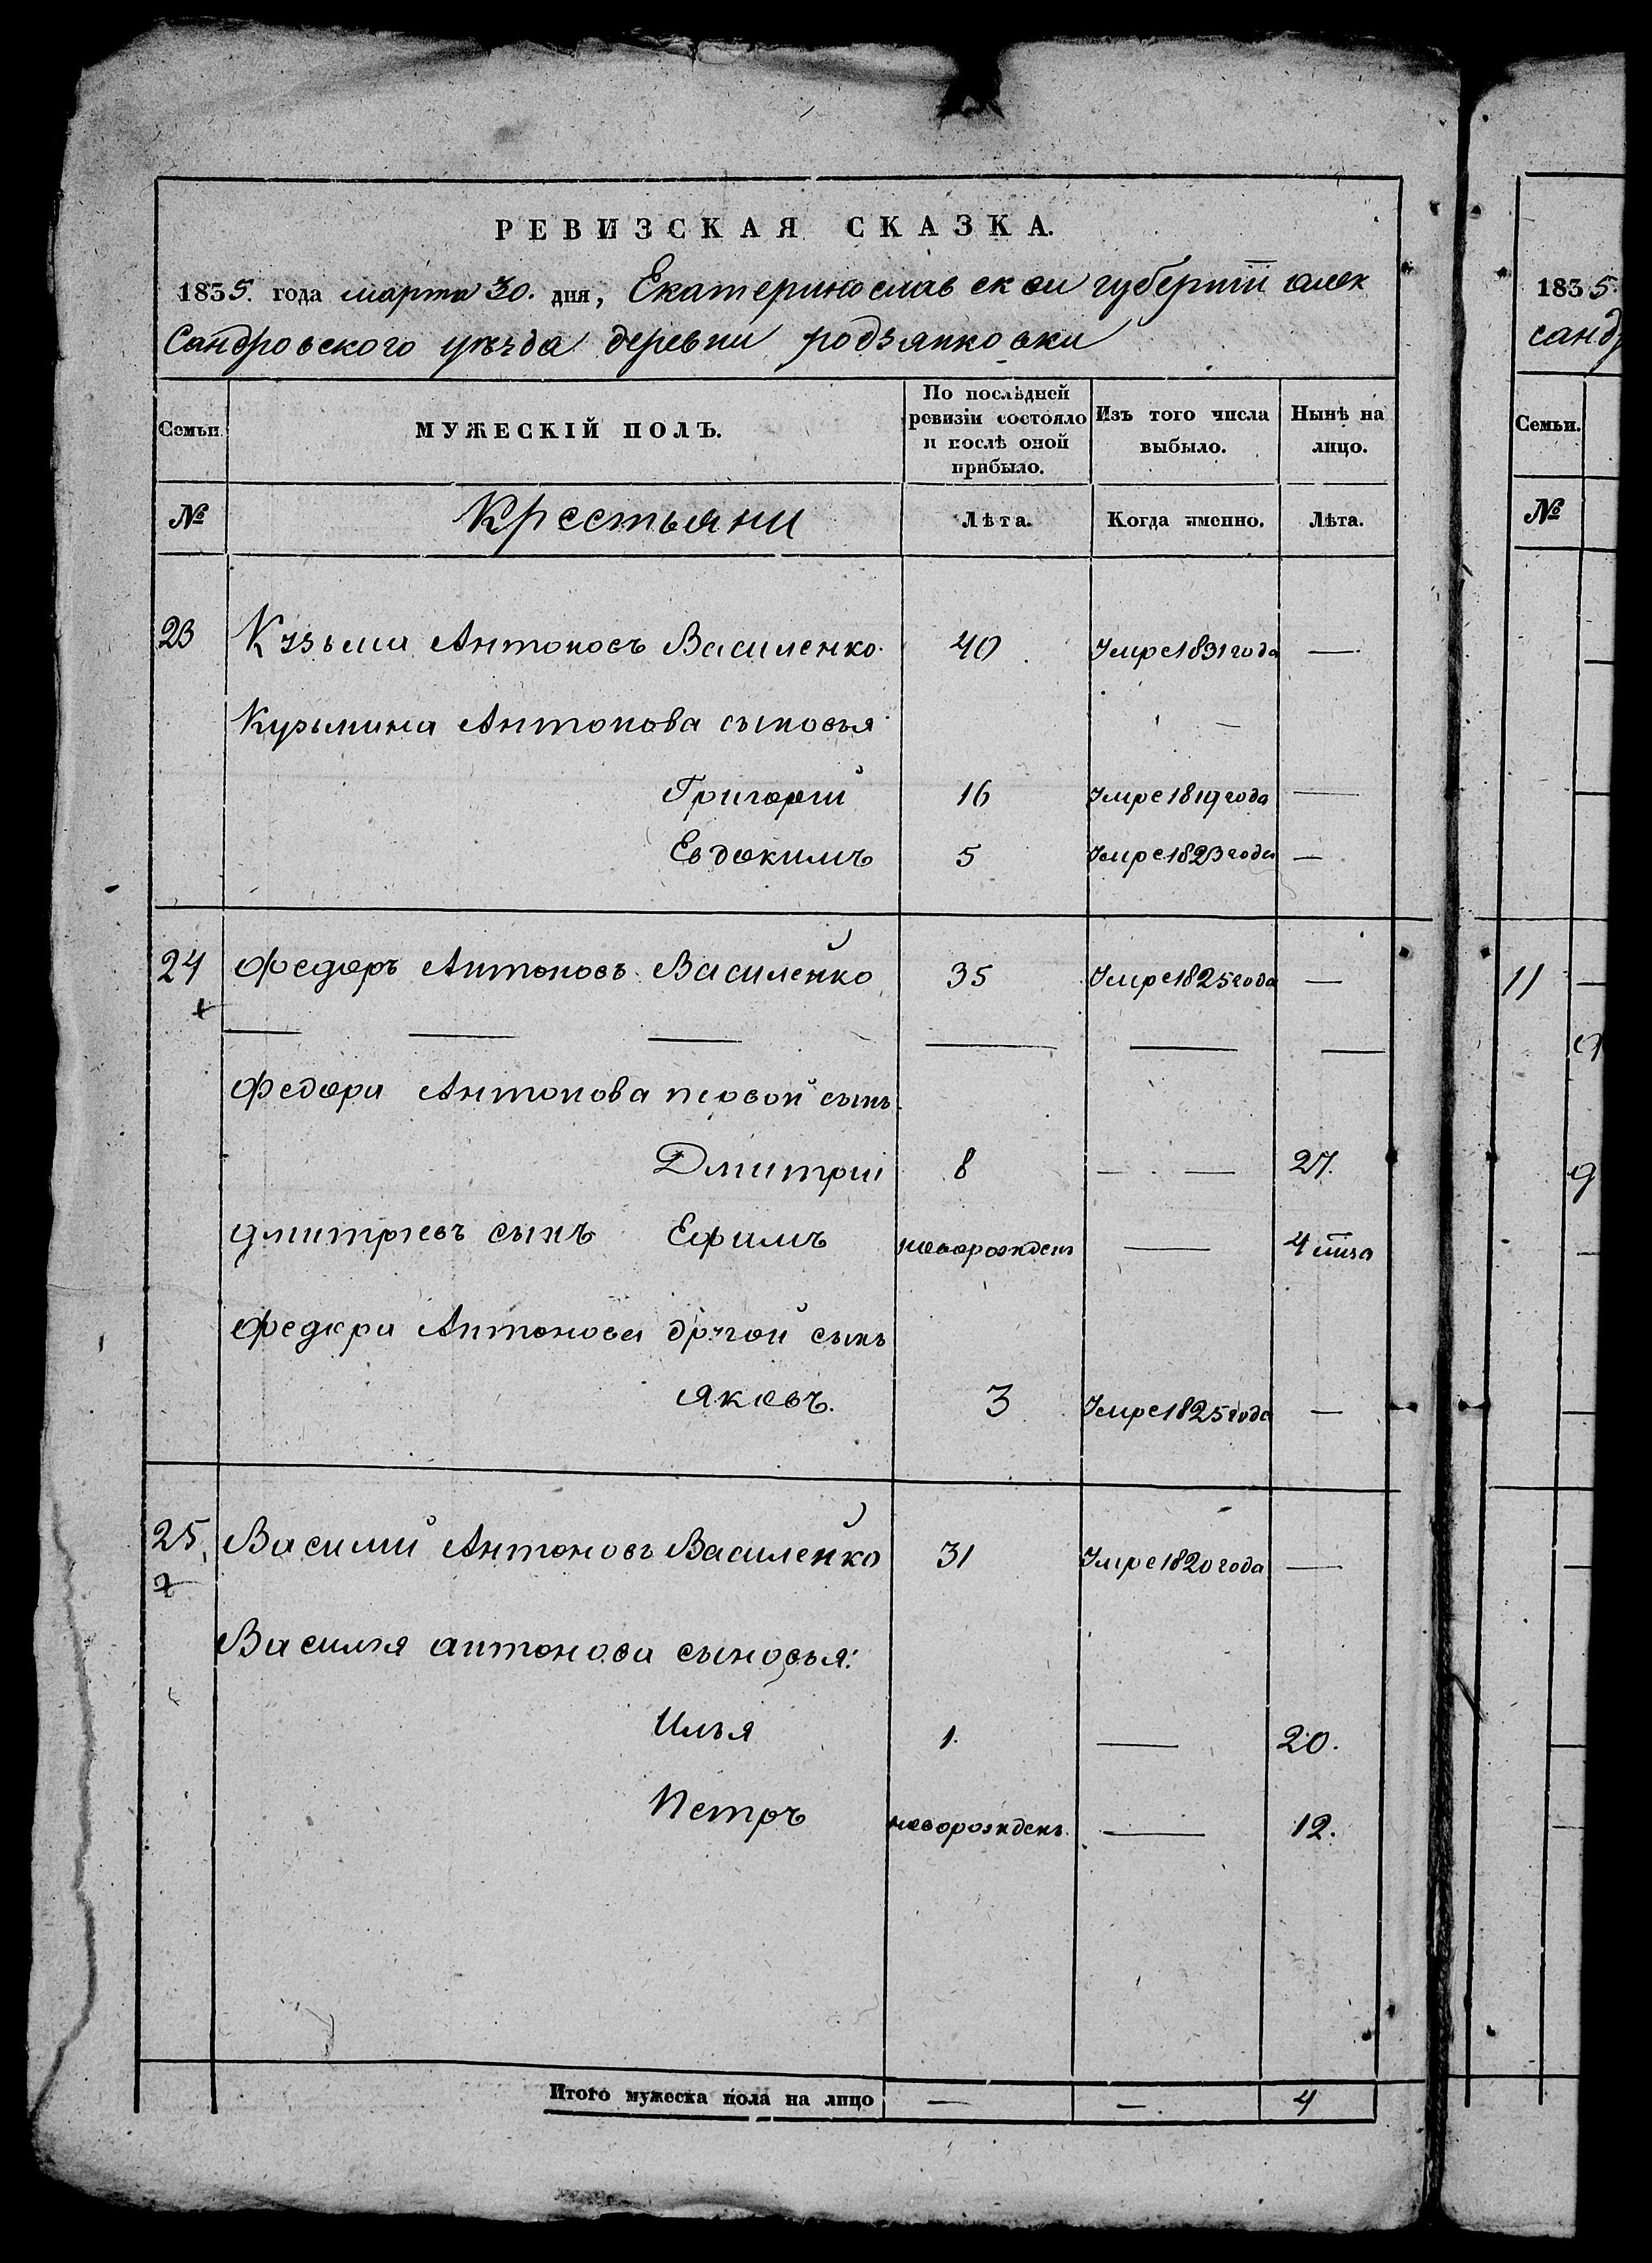 РЕВИЗСКАЯ СКАЗКА.
1835. года марта 30. дня, Екатеринославской губернии алек
сандровского уѣзда деревни родзянковки
Семьи.
МУЖЕСКІЙ ПОЛЪ.
По послѣдней ревизіи состояло и послѣ оной прибыло.
Изъ того числа выбыло.
Нынѣ на лицо.
№ Крестьяни Лѣта. Когда именно. Лѣта.
23 Кузьма Антоновъ Василенко. 40 Умре 1831 года —
Кузьмина Антонова сыновья
Григорий 16 Умре 1819 года —
Евдокимъ 5 Умре 1823 года —
24 Федоръ Антоновъ Василенко 35 Умре 1825 года —
Федора Антонова первой сынъ
Дмитрий 8 — 27.
Дмитриевъ сынъ Ефимъ новорожденъ — 4
Федора Антонова другой сынъ
Яковъ. 3 Умре 1825 года —
25. Василий Антоновъ Василенко 31 Умре 1820 года —
Василия антонова сыновья:
Илья 1. — 20.
Петръ новорожденъ — 12.
Итого мужеска пола на лицо — — 4
1835.
санд
Семьи.
№
11